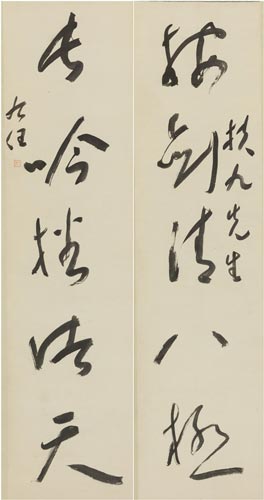 按劍清八極
扶九先生
長吟播諸天
右任